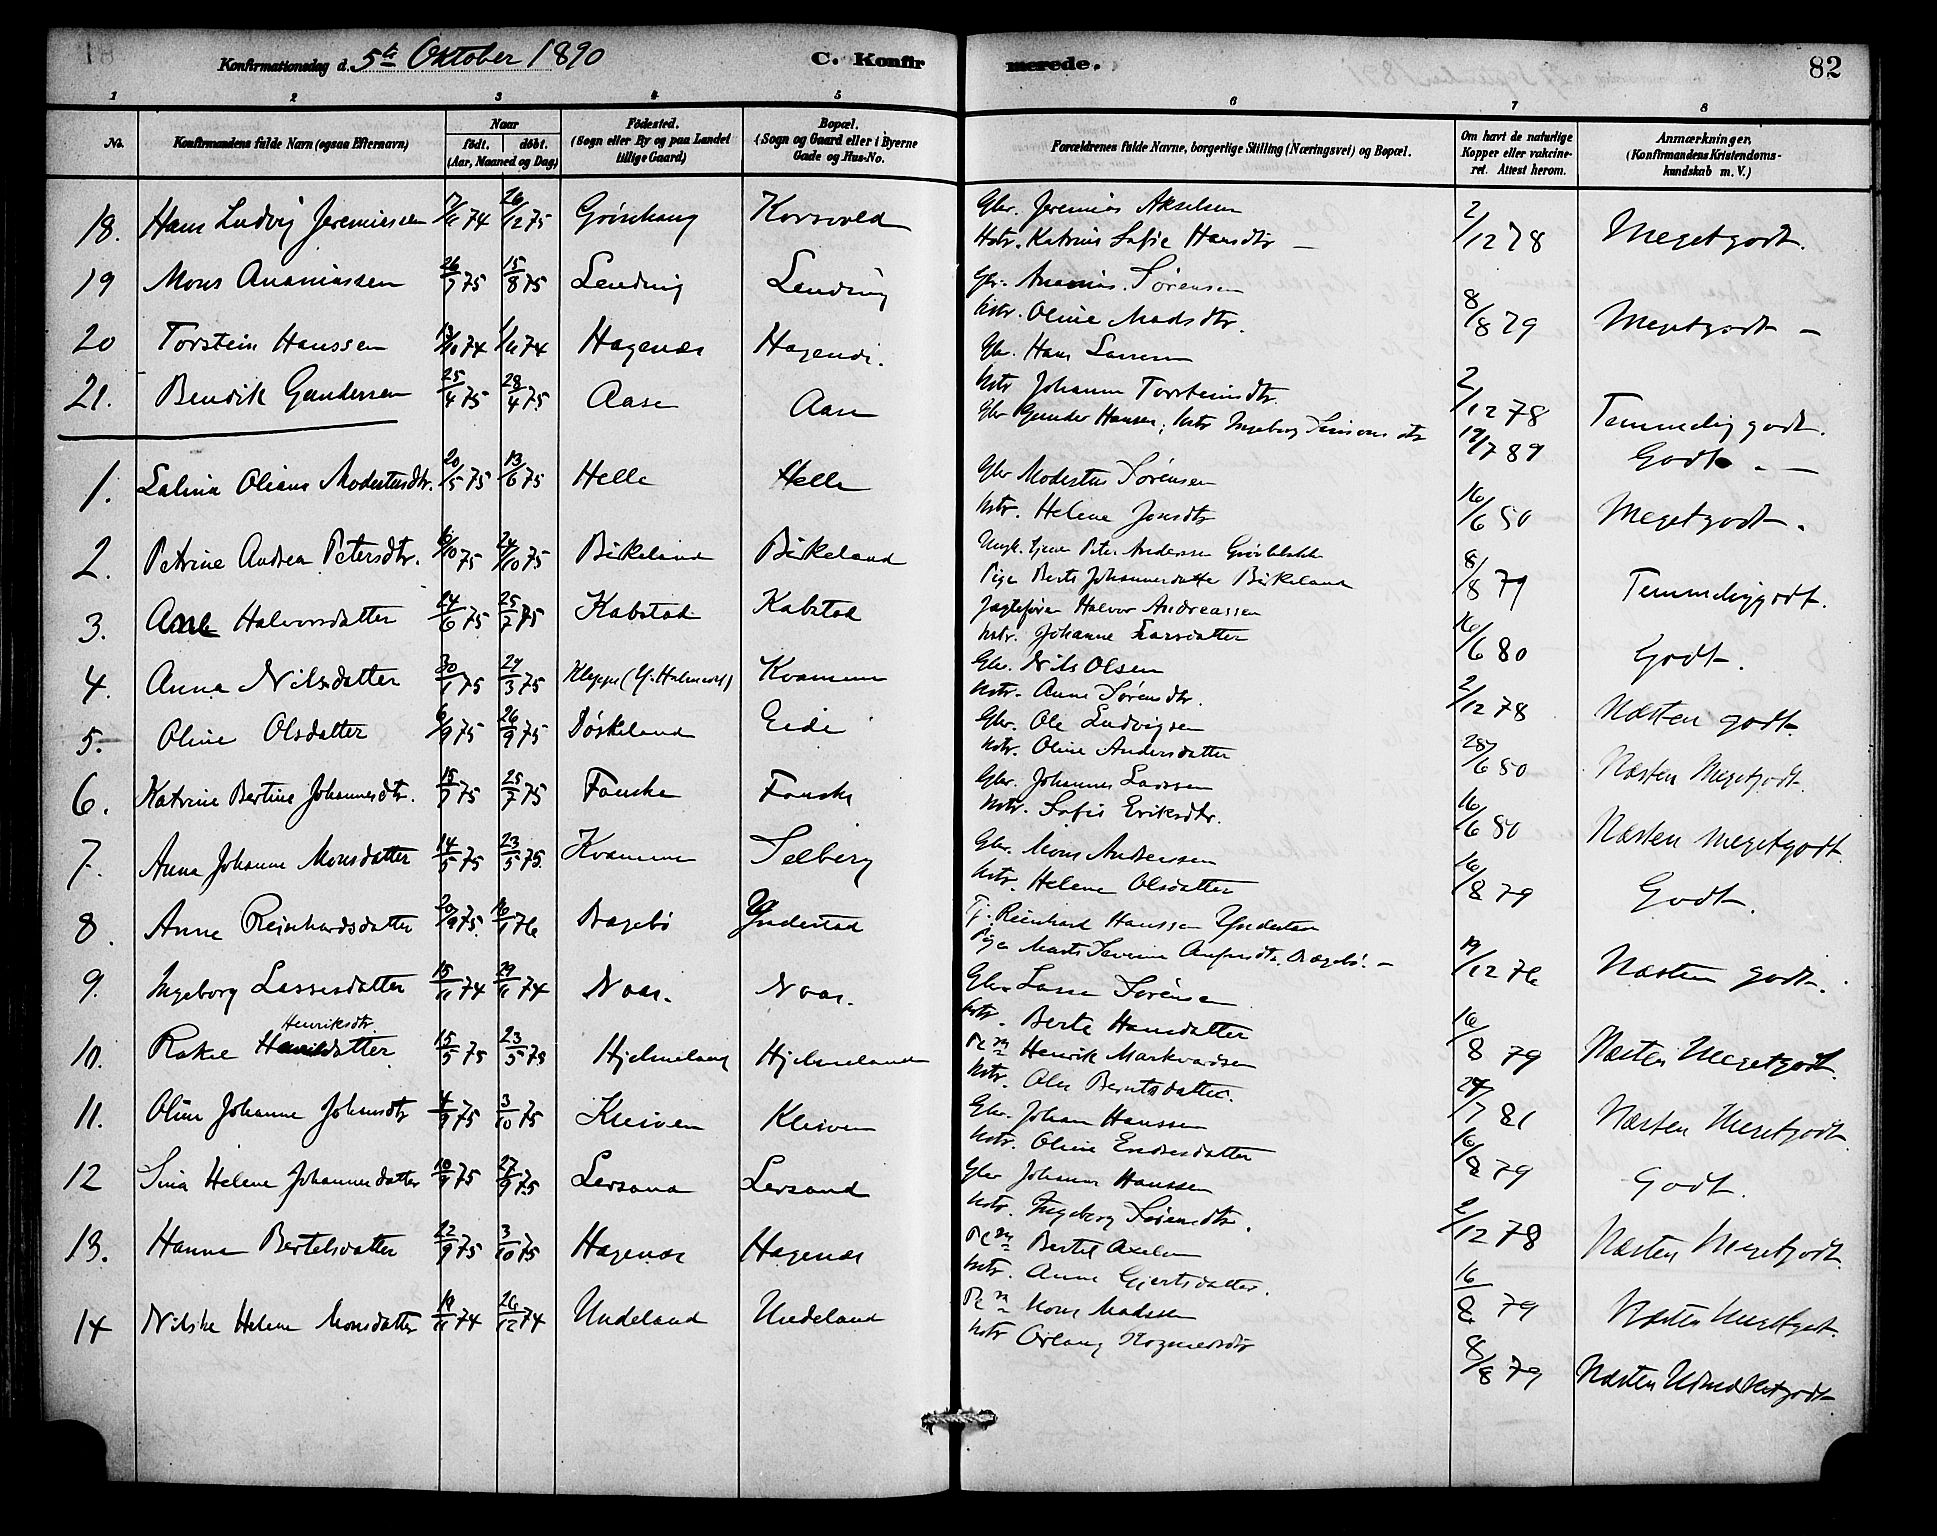 Konfirmationsdag d. 5te Oktober 1890
C. Konfirmerede.
82
1 2 3 4 5 6 7 8
No.
Konfirmandens fulde Navn (ogsaa Efternavn)
Naar
født. døbt.
(Aar, Maaned og Dag)
Fødested.
(Sogn eller By og paa Landet
tillige Gaard)
Bopæl.
(Sogn og Gaard eller i Byerne
Gade og Hus-No.
Forældrenes fulde Navne, borgerlige Stilling (Næringsvei) og Bopæl.
Om havt de naturlige
Kopper eller vakcine-
ret. Attest herom.
Anmærkninger,
(Konfirmandens Kristendoms-
kundskab m. V.)
18. Hans Ludvig Jeremiassen 74 26/12 75 Grönhaug Korsvold Gbr. Jeremias Akselsen
Hstr. Katrine Sofie Hansdtr 2/12 78 Megetgodt.
19 Mons Ananiassen 26/7 75 15/8 75 Lending Lending Gbr. Ananias Sörensen
Hstr. Oline Madsdtr. 8/8 79 Megetgodt
20 Torstein Hanssen 13/10 74 1/11 74 Hagenæs Gbr. Hans Larssen
Hstr Johanne Torsteinsdtr. 2/12 78 Temmelig godt.
21. Bendik Gundersen 25/4 75 28/4 75 Aase Aase Gbr Gunder Hansen, Hstr Ingeborg dtr 19/7 89 Godt.
1. Salina Oliane Modestusdtr. 20/5 75 13/6 75 Helle Helle Gbr Modestus Sörensen
Hstr. Helene Jonsdtr 16/6 80 Megetgodt.
2. Petrine Andrea Petersdtr. 6/10 75 24/10 75 Birkeland Birkeland Ungk. tjen. Peter Anderssen
Pige Berte Johannesdatter Birkeland 8/8 79 Temmeliggodt.
3. Ane Halvorsdatter 24/6 75 25/7 75 Kalstad Kalstad Jægtefører Halvor Andreassen
Hstr. Johanne Larsdatter 16/6 80 Godt.
4. Anna Nilsdatter 30/1 75 29/3 75 Kleppe Kvamme Gbr. Nils Olsen
Hstr. Anne Sörensdtr. 2/12 78 Næsten godt.
5. Oline Olsdatter 6/9 75 26/9 75 Döskeland Eide Gbr. Ole Ludvigsen
Hstr. Oline Andersdatter 28/6 80 Næsten Megetgodt.
6. Katrine Bertine Johannesdtr. 15/7 75 25/7 75 Fonske Fonske Gbr. Johannes Larssen
Hstr. Sofie Eriksdtr. 16/6 80 Næsten megetgodt.
7. Anna Johanne Monsdatter 14/5 75 23/5 75 Kvamme Solberg Gbr. Mons Anderssen
Hstr. Helene Olsdatter 16/8 79 Godt.
8. Anne Reinhardsdatter 20/9 75 16/1 76 Bagebö Yndestad Tj. Reinhard Hanssen Yndestad
Pige Marte Severine 19/12 76 Næsten godt.
9. Ingeborg Lassesdatter 15/11 74 29/11 74 Naas. Naas. Gbr Lasse Sörensen
Hstr. Berte Hansdatter 16/8 79 Næsten Megetgodt.
10. Rakel Henriksdtr. 15/5 75 23/5 75 Hjelmeland Hjelmeland Pl.m Henrik Markvardsen
Hstr. Ales Berntsdatter. 24/7 81 Næsten Megetgodt.
11. Oline Johanne Johansdtr 4/9 75 3/10 75 Kleiven Kleiven Gbr. Johan Hanssen
Hstr. Oline Endresdatter 16/8 79 Godt.
12 Sina Helene Johannesdatter 10/9 75 27/9 75 Lersand Lersand Gbr Johannes Hanssen
Hstr. Ingeborg Sörensdtr. 2/12 78 Næsten Megetgodt.
13. Hanna Bertelsdatter 22/9 75 3/10 75 Hagenæs Hagenæs Pl.m Bertel Axelsen
Hstr. Anne Gjertsdatter. 16/8 79 Næsten Megetgodt.
14 Nilske Helene Monsdatter 19/11 74 26/12 74 Undeland Undeland Pl.m Mons Madssen
Hstr 8/8 79 Næsten